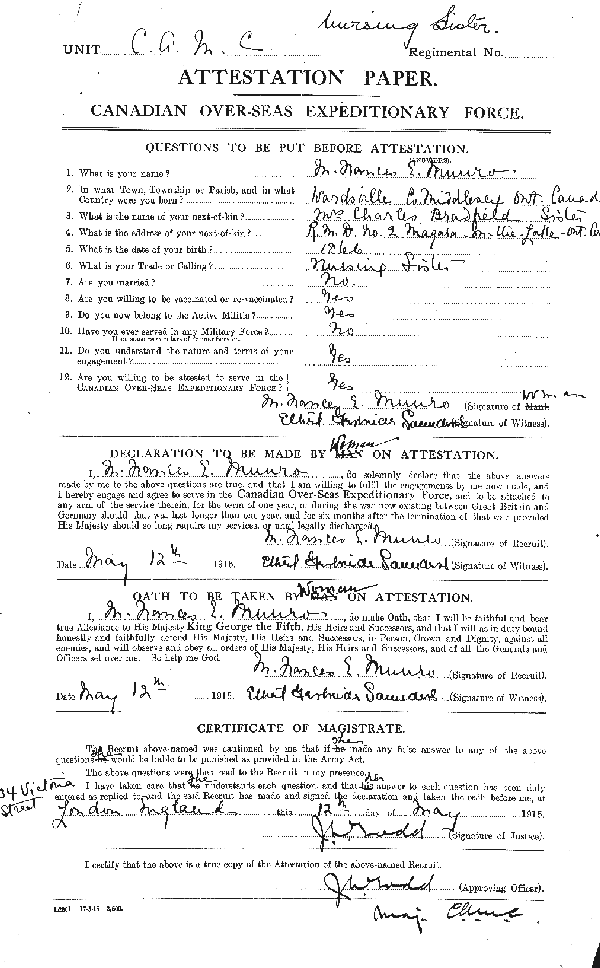 Nursing Sister.
UNIT C. A. M. C Regimental No.
ATTESTATION PAPER.
CANADIAN OVER-SEAS EXPEDITIONARY FORCE.
QUESTIONS TO BE PUT BEFORE ATTESTATION.
(ANSWERS).
1. What is your name? M. Frances E. Munro.
2. In what Town, Township or Parish, and in what
Country were you born? Wardsville Co. Middlesex Ont. Canada
3. What is the name of your next-of-kin? Mrs Charles Bradfield Sister
4. What is the address of your next-of-kin? R.M.D. No. 2 Niagara On-the-Lake-Ont.
5. What is the date of your birth?
6. What is your Trade or Calling? Nursing Sister
7. Are you married? No.
8. Are you willing to be vaccinated or re-vaccinated? Yes
9. Do you now belong to the Active Militia? Yes
10. Have you ever served in any Military Force? No
11. Do you understand the nature and terms of your
engagement? Yes
12. Are you willing to be attested to serve in the
CANADIAN OVER-SEAS EXPEDITIONARY FORCE? Yes
woman
M. Frances E. Munro (Signature of Man).
Ethel Saunders (Signature of Witness).
Woman
DECLARATION TO BE MADE BY MAN ON ATTESTATION.
I, M. Frances E. Munro, do solemnly declare that the above answers
made by me to the above questions are true, and that I am willing to fulfil the engagements by me now made, and
I hereby engage and agree to serve in the Canadian Over-Seas Expeditionary Force, and to be attached to
any arm of the service therein, for the term of one year, or during the war now existing between Great Britain and
Germany should that war last longer than one year, and for six months after the termination of that war provided
His Majesty should so long require my services, or until legally discharged.
M. Frances E. Munro (Signature of Recruit).
Date May 12th 1915. Ethel Saunders (Signature of Witness).
Woman
OATH TO BE TAKEN BY MAN ON ATTESTATION.
I, M. Frances E. Munro, do make Oath, that I will be faithful and bear
true Allegiance to His Majesty King George the Fifth, His Heirs and Successors, and that I will as in duty bound
honestly and faithfully defend His Majesty, His Heirs and Successors, in Person, Crown and Dignity, against all
enemies, and will observe and obey all orders of His Majesty, His Heirs and Successors, and of all the Generals and
Officers set over me. So help me God.
M. Frances E. Munro (Signature of Recruit).
Date May 12th 1915. Ethel Saunders (Signature of Witness).
CERTIFICATE OF MAGISTRATE.
The Recruit above-named was cautioned by me that if he made any false answer to any of the above
questions he would be liable to be punished as provided in the Army Act.
The above questions were then read to the Recruit in my presence.
34 Victoria Street
I have taken care that he understands each question, and that his answer to each question has been duly
entered as replied to, and the said Recruit has made and signed the declaration and taken the oath before me, at
London England this 12th day of May 1915.
(Signature of Justice).
I certify that the above is a true copy of the Attestation of the above-named Recruit.
(Approving Officer).
Maj.